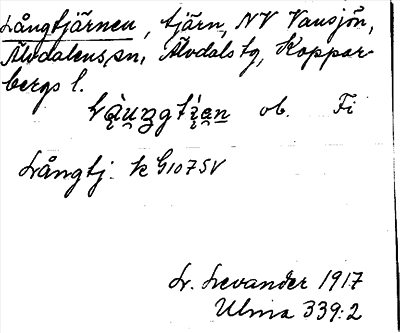 Långtjärnen, tjärn, NV Vansjön,
Älvdalens sn, Älvdals tg, Koppar-
bergs l.
ob. Fi
Långtj. k G107SV
L. Levander 1917
Ulma 339:2